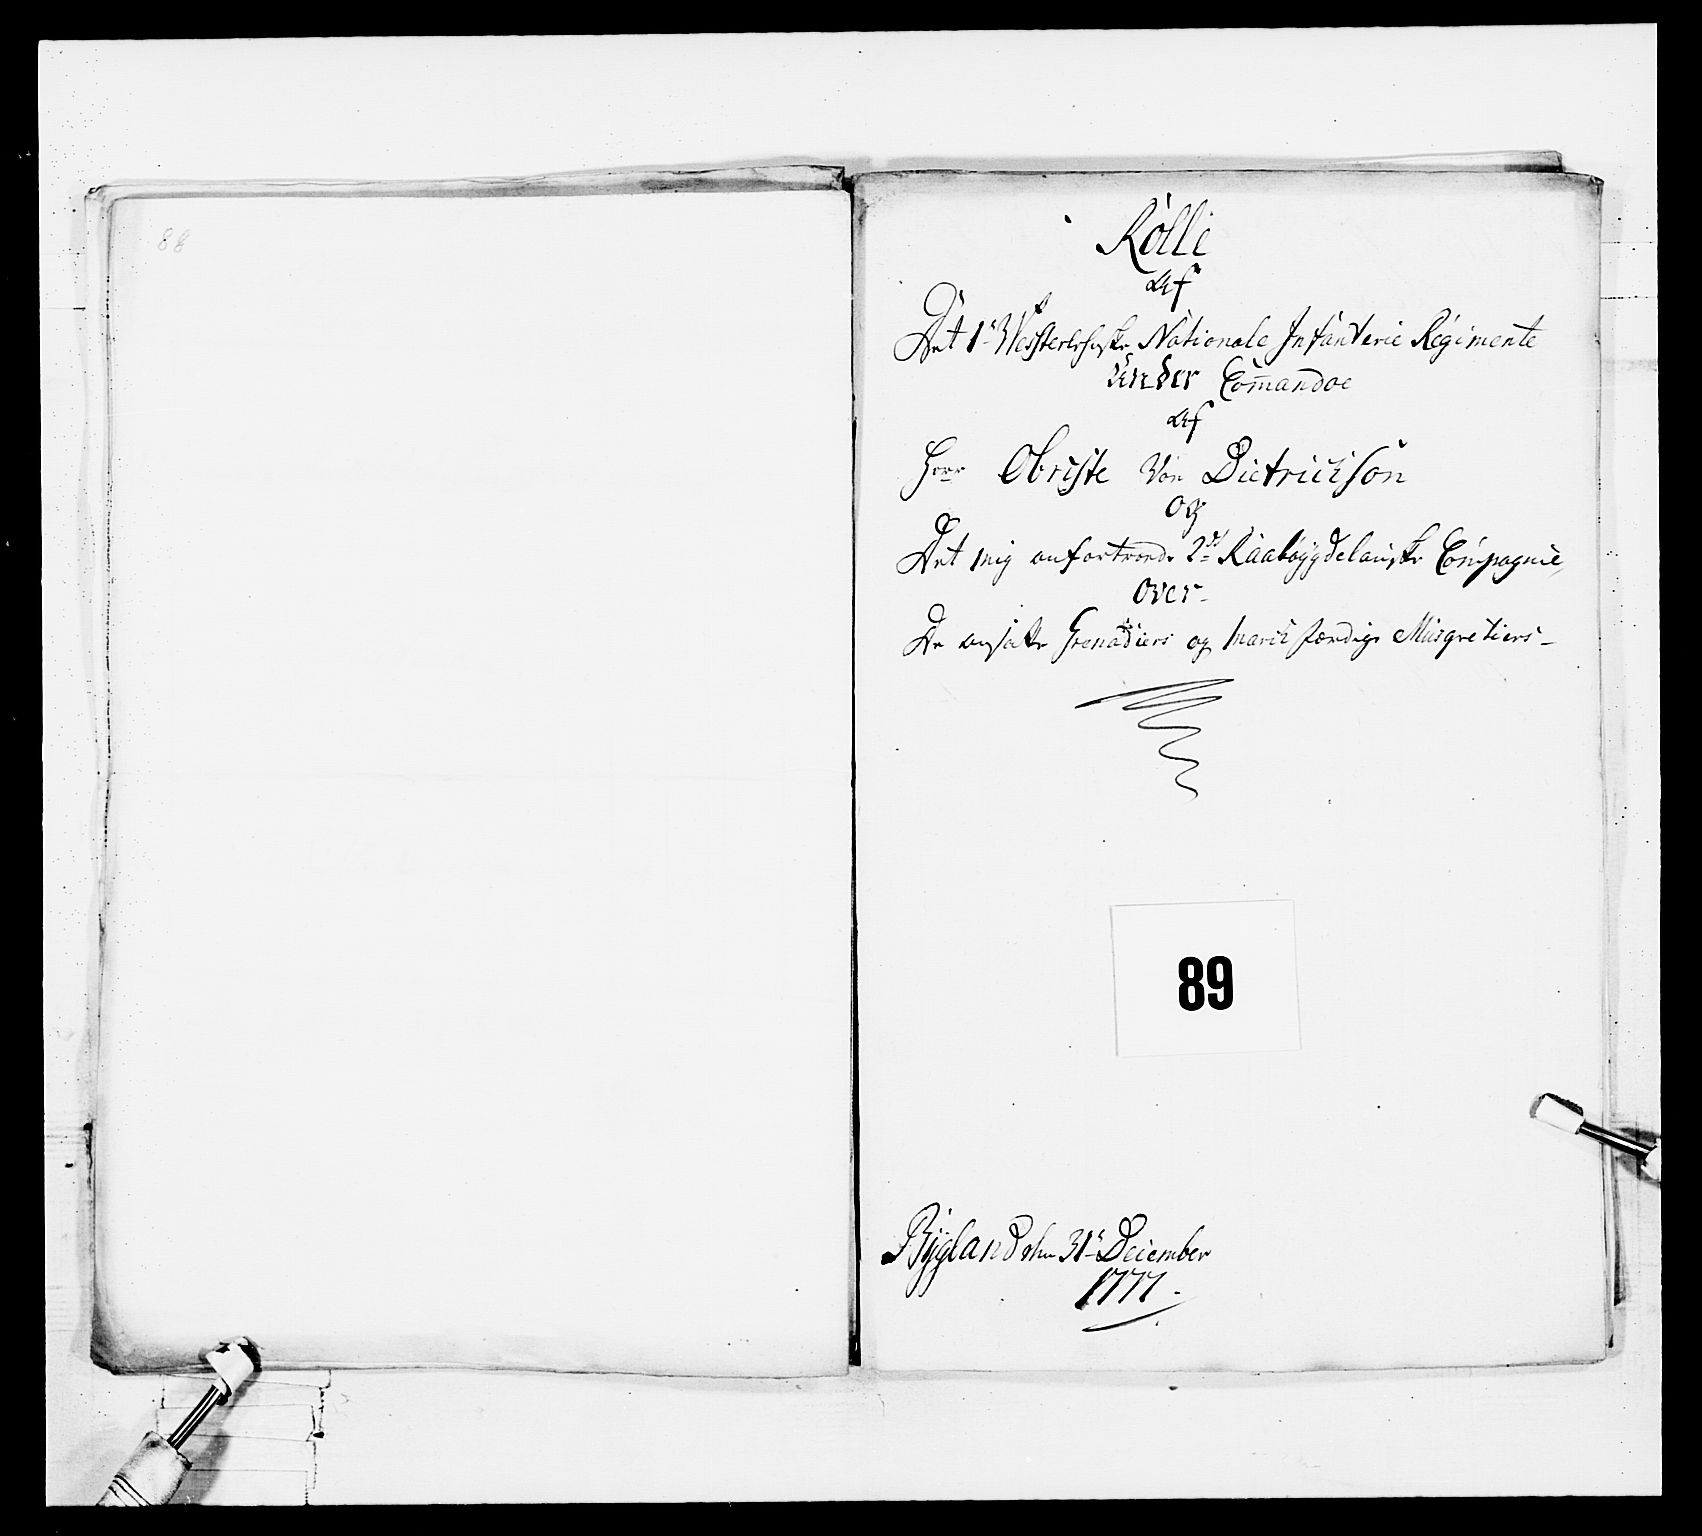 88
Rolle
af
Det 1ste Westerlehnske Nationale Infanterie Regimente
Under Com̄andoe
af
Herr Obriste Von Dietrichson
og
Det mig anfortroede 2det Raabøygdelauske Compagnie,
Over
De ansatte Grenadiers og march færdige Musqvetiers
89
Bÿgland den 31te December
1777.